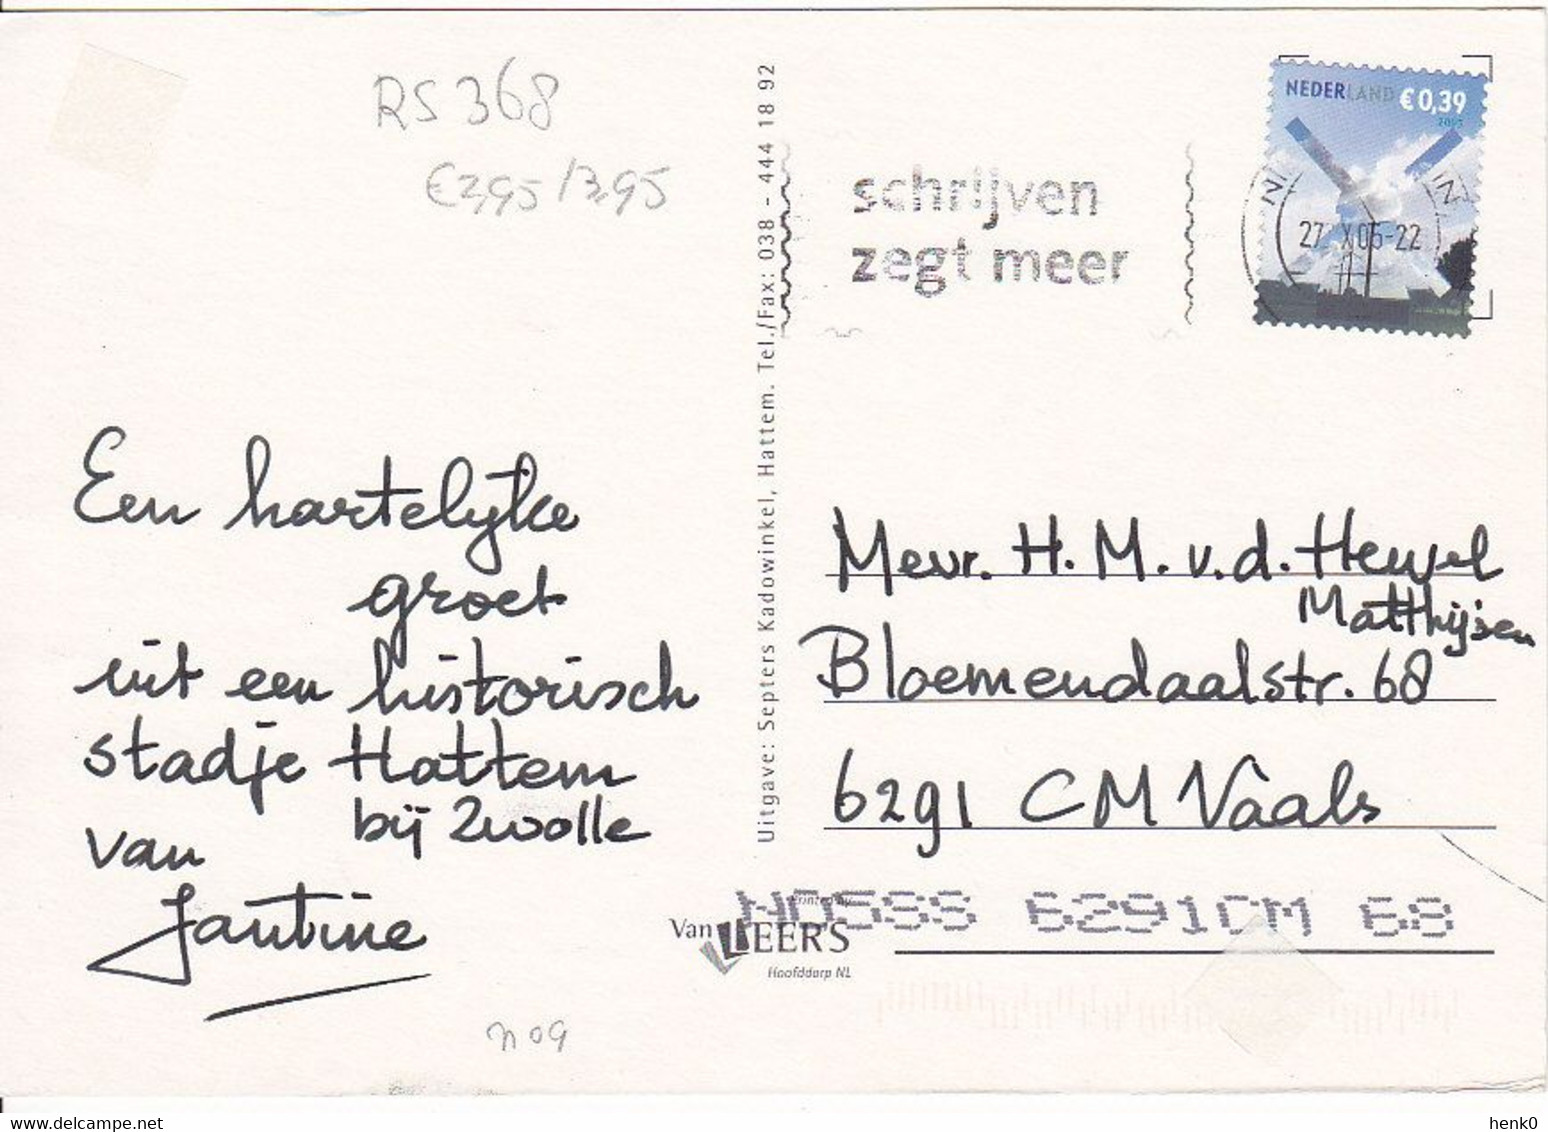 RS 368
€3,95/3,95
Een hartelijke
groet
uit een historisch
stadje Hattem
bij Zwolle
van
Jantine
n 09
Uitgave: Septers Kadowinkel, Hattem. Tel./Fax: 038 - 444 18 92
schrijven
zegt meer
NEDERLAND €0,39
2005
27 X 05-22
Mevr. H. M. v.d. Heuvel
Matthijsen
Bloemendaalstr. 68
6291 CM Vaals
NDSSS 6291CM 68
Printed by
Van LEERS
Hoofddorp NL
henk0